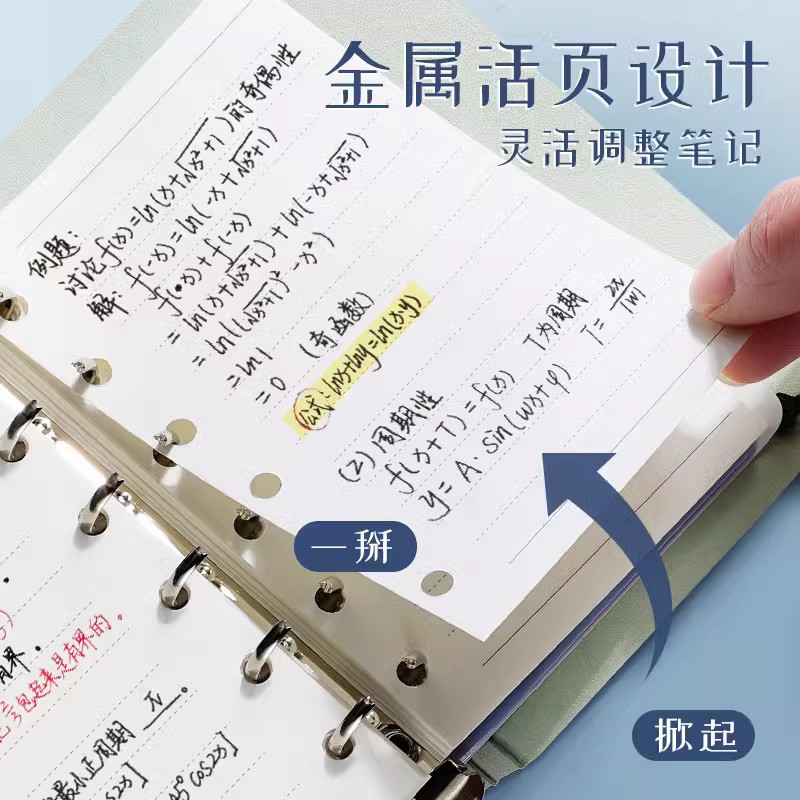 金属活页设计
灵活调整笔记
例题:
讨论f(x)=ln(x+√x²+1)的奇偶性
解: f(-x)=ln(-x+√x²+1)
f(x)+f(-x)
=ln(x+√x²+1)+ln(-x+√x²+1)
=ln((√x²+1)²-x²)
=ln1
=0 (奇函数)
公式:lnx+lny=ln(x·y)
(2)周期性
f(x+T)=f(x) T为周期
y=A·sin(wx+φ) T=2π/|w|
一掰
掀起
界。
包起来是有界的。
最小正周期 π。
os2x]
cos2x]